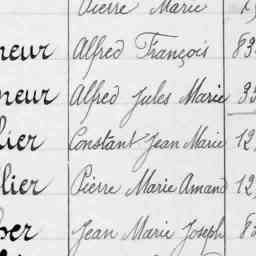 Pierre Marie
neur Alfred François 83
neur Alfred Jules Marie 33
lier Constant Jean Marie 12
llier Pierre Marie Amand 12
Jean Marie Joseph 82